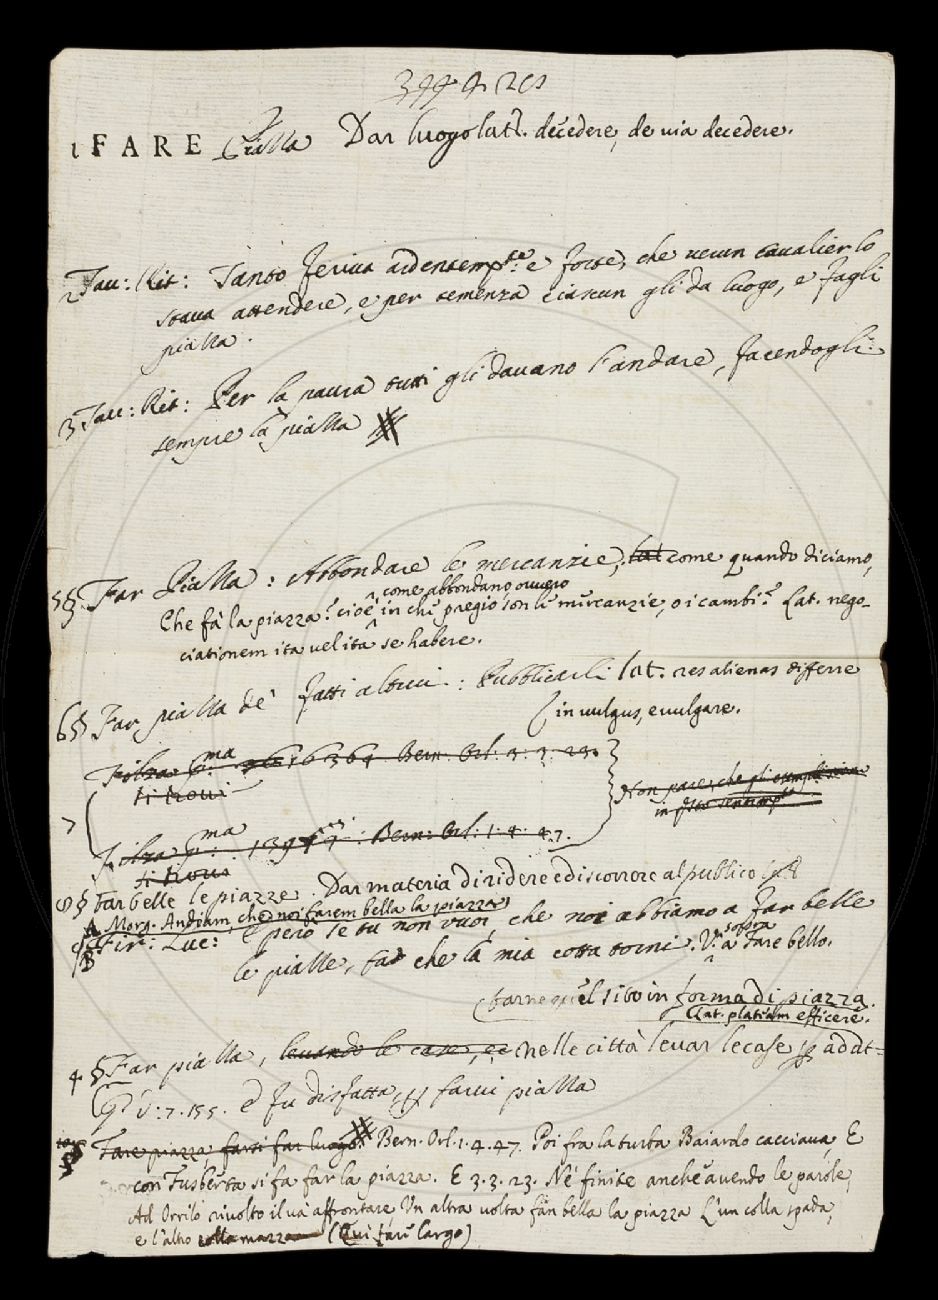 1 FARE Piazza Dar luogo lat. decedere, de via decedere.
2 Tav: Rit: Tanto feriva ardentem.te e forte, che verun cavalier lo
stava attendere, e per temenza ciascun gli da luogo, e fagli
piazza.
3 Tav: Rit: Per la paura tutti gli davano l'andare, facendogli
sempre la piazza
5 § Far Piazza: Abbondare le mercanzie, lat come quando diciamo,
come abbondano ovvero
Che fà la piazza? cioè in che pregio son le mercanzie, o i cambi? Lat. nego-
ciationem ita vel ita se habere.
6 § Far piazza de' fatti altrui: Pubblicarli lat. res alienas differre
in vulgus, evulgare.
Filza p.ma 16369 Bern. Orl: 3. 3. 23.
si trovi
Non pare, che gli
in
7
Filza p.ma Bern: Orl: 1. 4. 47.
si trovi
8 § Far belle le piazze. Dar materia di ridere e discorrere al publico
A Morg. Andiam, che noi farem bella la piazza
9 B Fir: Luc: e però se tu non vuoi, che noi abbiamo a far belle
le piazze, fa che la mia cotta torni. V. sopra a Fare bello.
el sito in forma di piazza.
Lat. plateam efficere.
4 § Far piazza, levando le case, ec nelle città levar le case p adat=
G. V: 7. 155. E fu disfatta, p farvi piazza
Fare piazza, farsi far luogo. Bern. Orl. 1. 4. 47. Poi fra la turba Baiardo cacciava, E
con Fusberta si fa far la piazza. E 3. 3. 23. Nè finite anche avendo le parole,
Ad Orrilo rivolto il va affrontare Un altra volta fan bella la piazza L'un colla spada,
e l'altro colla mazza (Qui farsi largo)